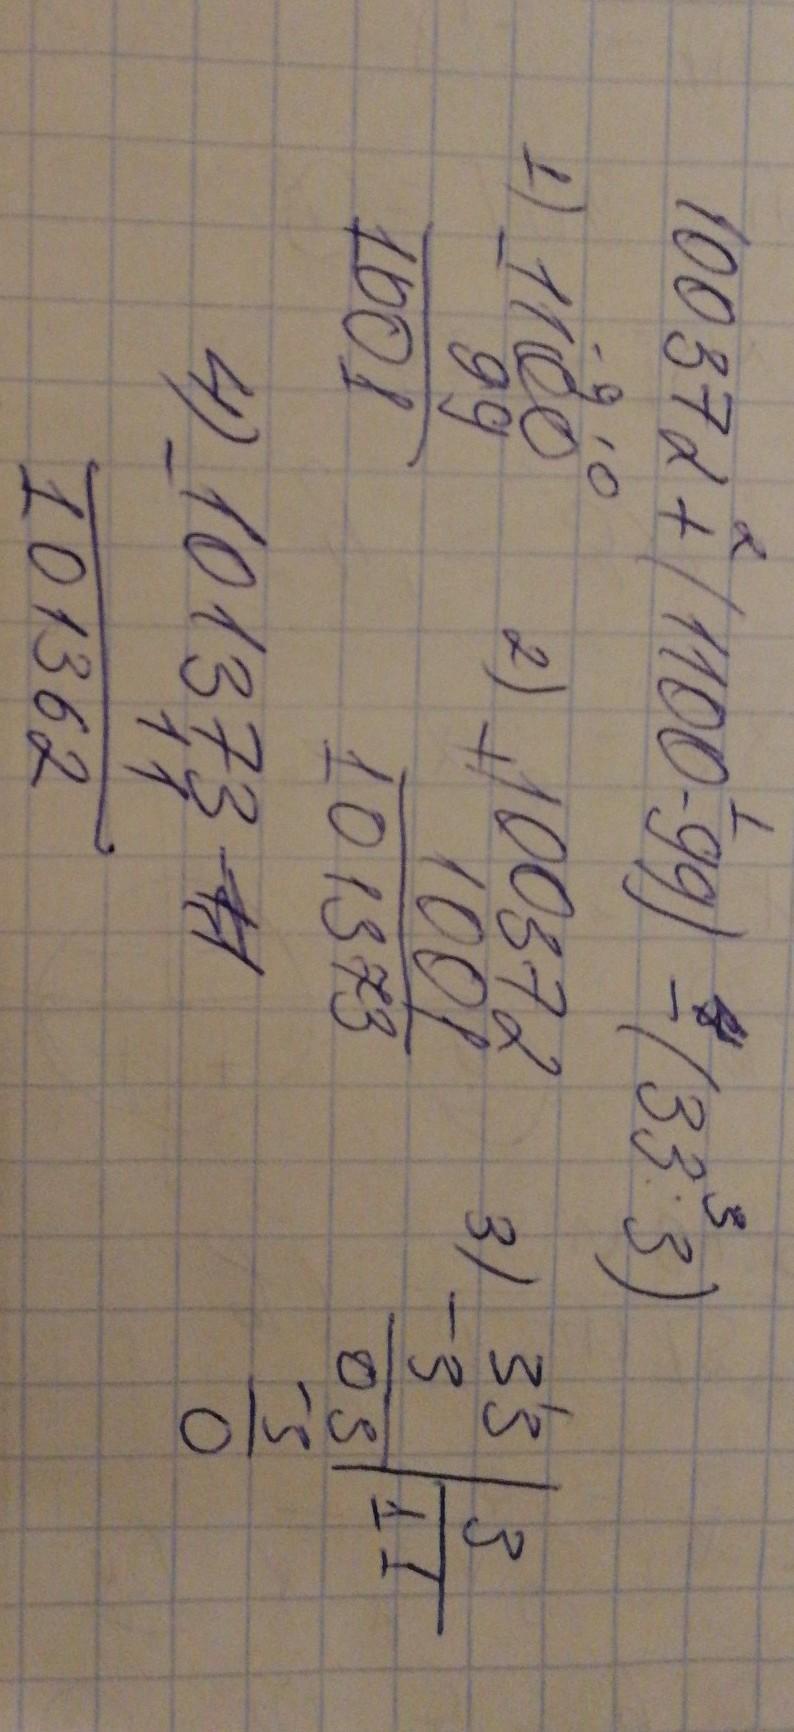 100372 + (1100 - 99) - (33 : 3)
2 1 4 3
1) - 1100
99
1001
2) + 100372
1001
101373
3) 33 | 3
- 3 | 11
03
- 3
0
4) - 101373
11
101362